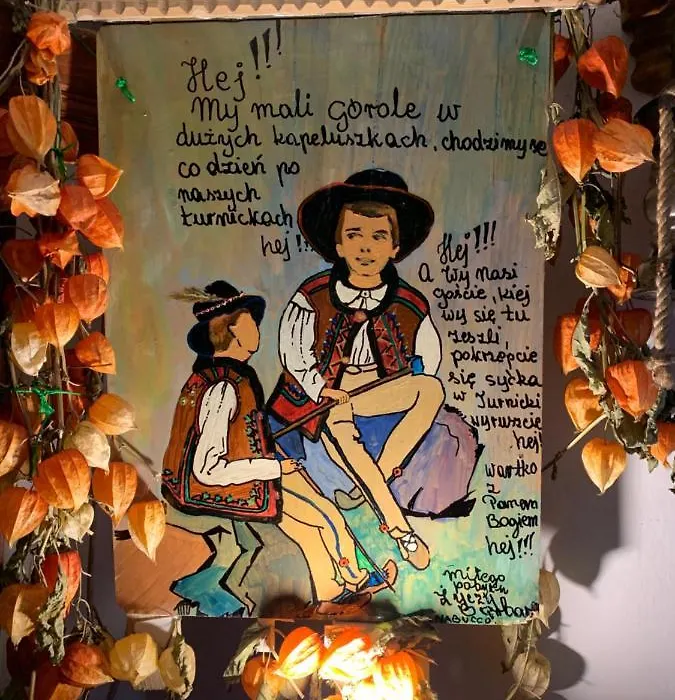 Hej!!!
My mali gorole w
dużych kapeluszkach, chodzimy se
co dzień po
naszych
turnickach
hej!!!
Hej!!!
A Wy nasi
goście, kiej
wy się tu
zeszli,
pokrzepcie
się syćka
w Turnicki
wyruszcie
hej!
wartko
z
Panem
Bogiem
hej!!!
Miłego
pobytu
Życzy
Barbara
NABUCCO